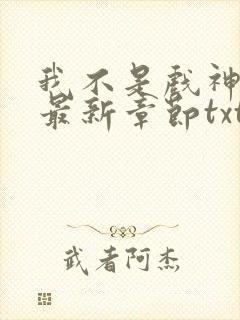 我不是戏神
最新章节txt
武者阿杰